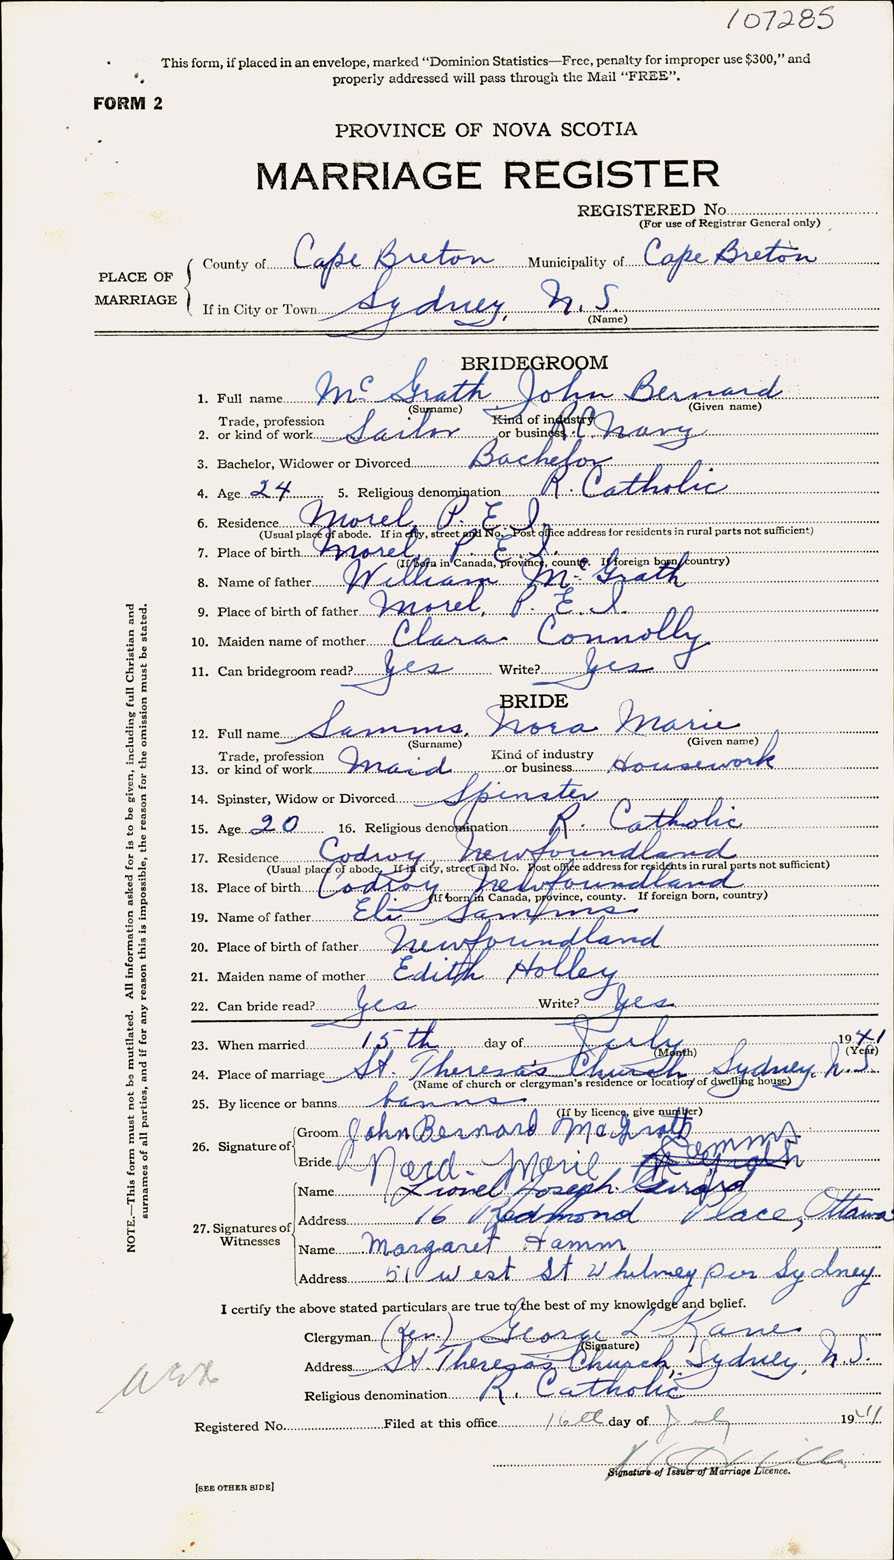 107285
This form, if placed in an envelope, marked “Dominion Statistics—Free, penalty for improper use $300,” and
properly addressed will pass through the Mail “FREE”.
FORM 2
PROVINCE OF NOVA SCOTIA
MARRIAGE REGISTER
REGISTERED No.
(For use of Registrar General only)
PLACE OF MARRIAGE
County of Cape Breton Municipality of Cape Breton
If in City or Town Sydney, N. S.
(Name)
BRIDEGROOM
1. Full name McGrath John Bernard
(Surname) (Given name)
Trade, profession Kind of industry
2. or kind of work Sailor or business R.C. Navy
3. Bachelor, Widower or Divorced Bachelor
4. Age 24 5. Religious denomination R. Catholic
6. Residence Morel, P. E. I.
(Usual place of abode. If in city, street and No. Post office address for residents in rural parts not sufficient)
7. Place of birth Morel, P. E. I.
(If born in Canada, province, county. If foreign born, country)
8. Name of father William McGrath
9. Place of birth of father Morel, P. E. I.
10. Maiden name of mother Clara Connolly
11. Can bridegroom read? Yes Write? Yes
BRIDE
12. Full name Samms, Nora Marie
(Surname) (Given name)
Trade, profession Kind of industry
13. or kind of work Maid or business Housework
14. Spinster, Widow or Divorced Spinster
15. Age 20 16. Religious denomination R. Catholic
17. Residence Codroy, Newfoundland
(Usual place of abode. If in city, street and No. Post office address for residents in rural parts not sufficient)
18. Place of birth Codroy Newfoundland
(If born in Canada, province, county. If foreign born, country)
19. Name of father Eli Samms
20. Place of birth of father Newfoundland
21. Maiden name of mother Edith Holley
22. Can bride read? Yes Write? Yes
23. When married 15th day of July 1941
(Month) (Year)
24. Place of marriage St. Theresa's Church Sydney, N. S.
(Name of church or clergyman's residence or location of dwelling house)
25. By licence or banns banns
(If by licence, give number)
26. Signature of Groom John Bernard McGrath
Bride Marie
27. Signatures of Witnesses
Name Lionel Joseph Girard
Address 16 Redmond Place, Ottawa
Name Margaret Hamm
Address 51 West St Whitney pier Sydney
I certify the above stated particulars are true to the best of my knowledge and belief.
Clergyman (Rev.) George L Kane
(Signature)
Address St. Theresa's Church, Sydney, N.S.
Religious denomination R. Catholic
Registered No. Filed at this office 16th day of July 1941
Signature of Issuer of Marriage Licence.
[SEE OTHER SIDE]
NOTE.—This form must not be mutilated. All information asked for is to be given, including full Christian and
surnames of all parties, and if for any reason this is impossible, the reason for the omission must be stated.